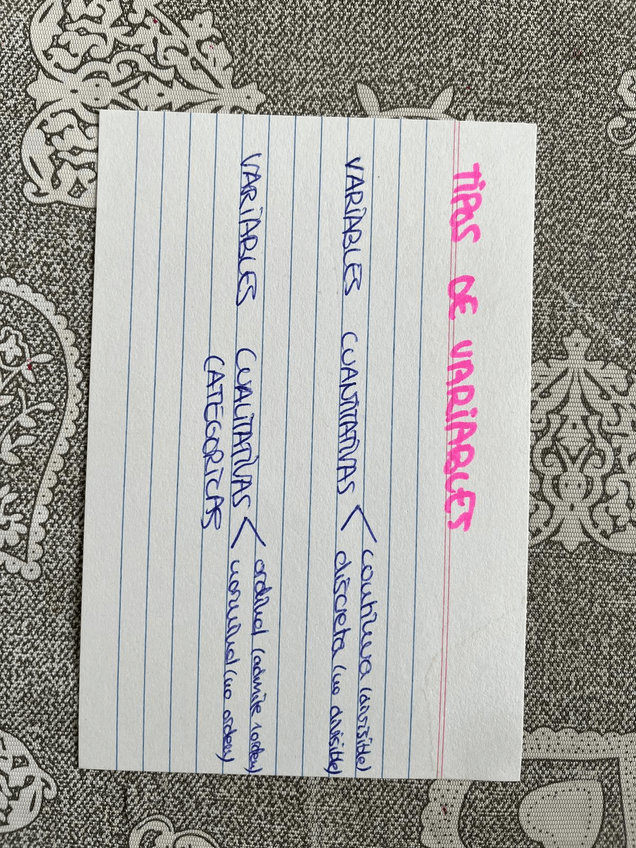 TiPOS DE VARiABLES
VARiABLES CUANTITATIVAS < continua (divisible)
discreta (no divisible)
VARiABLES CUALITATIVAS < ordinal (admite orden)
CATEGORICAS nominal (no orden)